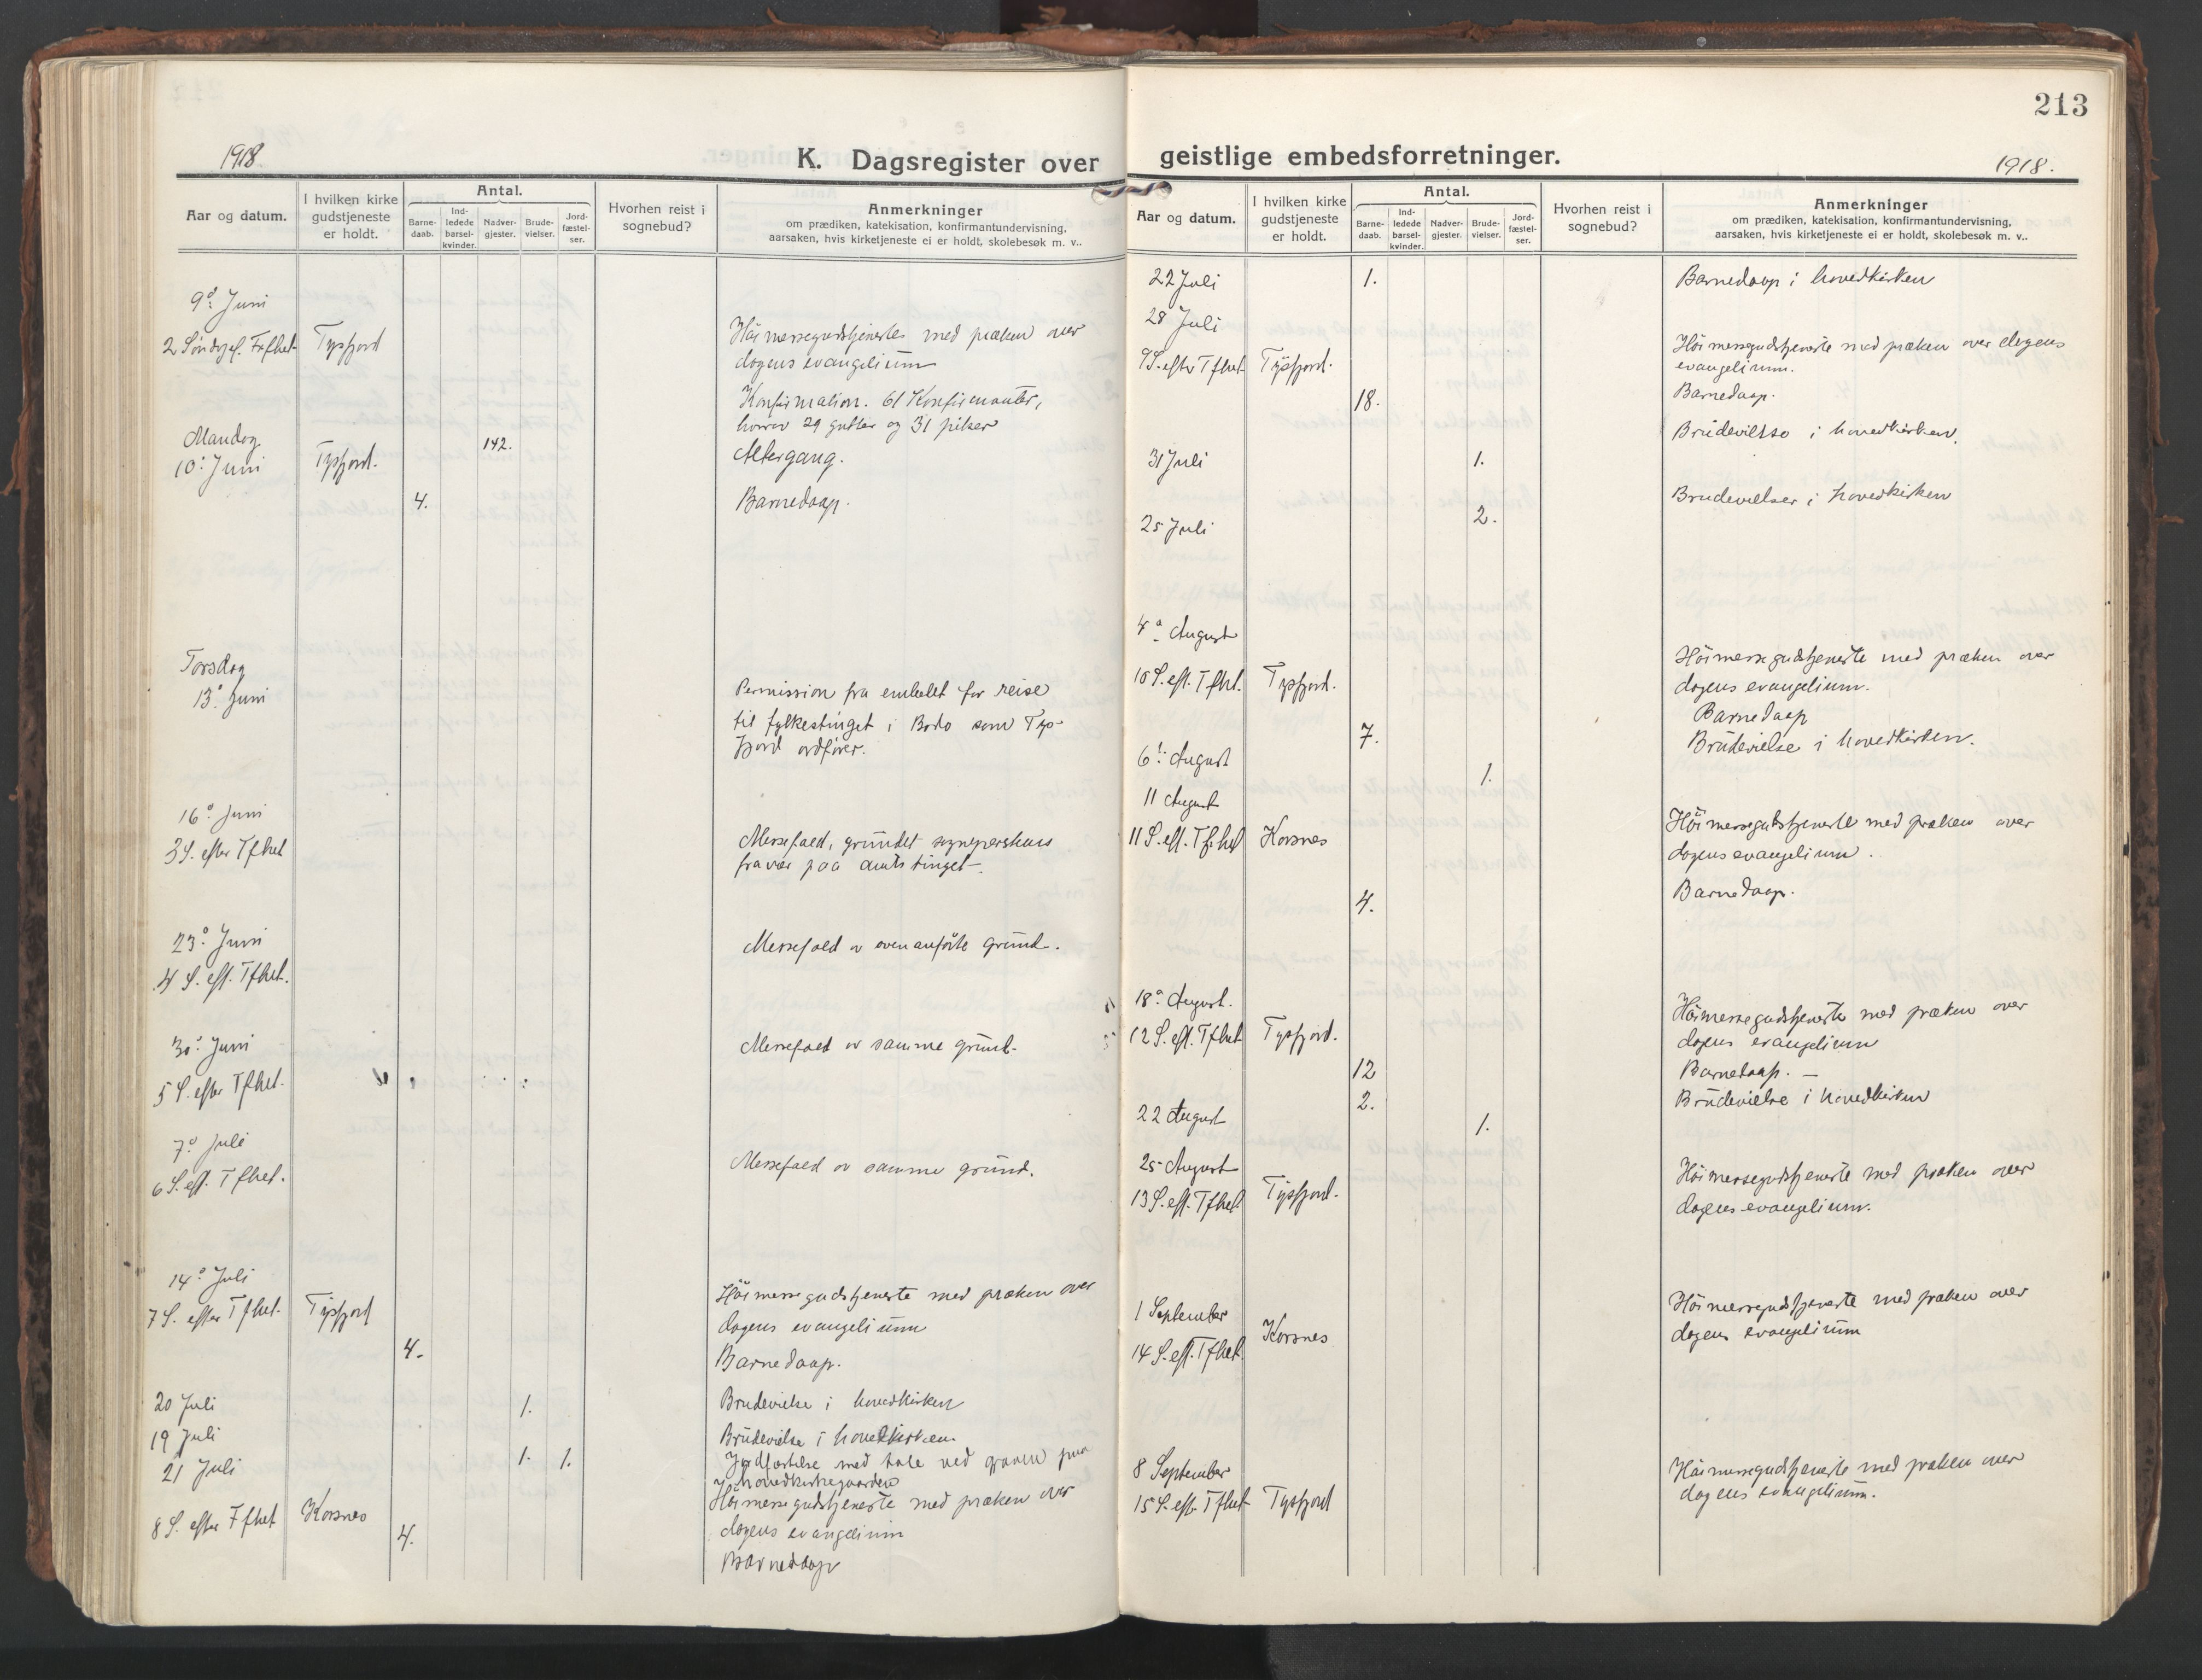 213
1918.
K. Dagsregister over
geistlige embedsforretninger.
1918.
Aar og datum.
I hvilken kirke gudstjeneste er holdt.
Antal.
Barne-daab.
Ind-ledede barsel-kvinder.
Nadver-gjester.
Brude-vielser.
Jord-fæstel-ser.
Hvorhen reist i sognebud?
Anmerkninger
om prædiken, katekisation, konfirmantundervisning,
aarsaken, hvis kirketjeneste ei er holdt, skolebesøk m. v..
9de Juni
2 Søndag ef. Trfhet Tysfjord Høimessegudstjeneste med præken over
dagens evangelium
Konfirmation. 61 Konfirmanter,
hvorav 29 gutter og 31 piker
Mandag 142. Altergang.
10: Juni Tysfjord.
4. Barnedaap.
Torsdag
13: Juni Permission fra embedet for reise
til fylkestinget i Bodo som Tys-
fjord ordfører.
16: Juni
3 S. efter Tfhet Messefald, grundet sognepresten
fravær paa amtstinget.
23: Juni Messefald av ovenanførte grund.
4 S. eft. Tfhet.
30: Juni Messefald av samme grund.
5 S. efter Tfhet.
7: Juli Messefald av samme grund.
6 S. eft. Tfhet.
14: Juli
7 S. efter Tfhet. Tysfjord Høimessegudstjeneste med præken over
dagens evangelium
4. Barnedaap.
20 Juli 1. Brudevielse i hovedkirken
19 Juli Brudevielse i hovedkirken
21 Juli 1. 1. Jordfæstelse med tale ved graven paa
hovedkirkegaarden
8 S. efter Tfhet Korsnes Høimessegudstjeneste med præken over
4. dagens evangelium
Barnedaap
Aar og datum.
I hvilken kirke gudstjeneste er holdt.
Antal.
Barne-daab.
Ind-ledede barsel-kvinder.
Nadver-gjester.
Brude-vielser.
Jord-fæstel-ser.
Hvorhen reist i sognebud?
Anmerkninger
om prædiken, katekisation, konfirmantundervisning,
aarsaken, hvis kirketjeneste ei er holdt, skolebesøk m. v..
22 Juli 1. Barnedaap i hovedkirken
28 Juli
9 S. efter Tfhet Tysfjord. Høimessegudstjeneste med præken over dagens
evangelium.
18. Barnedaap.
Brudevielse i hovedkirken.
31 Juli 1.
Brudevielser i hovedkirken
25 Juli 2.
4: August
10 S. eft. Tfhet. Tysfjord. Høimessegudstjeneste med præken over
dagens evangelium.
7. Barnedaap
6: August 1. Brudevielse i hovedkirken.
11 August
11 S. eft. Tfhet Korsnes Høimessegudstjeneste med præken over
dagens evangelium.
4. Barnedaap.
18: August.
12 S. eft. Tfhet Tysfjord. Høimessegudstjeneste med præken over
dagens evangelium
12 Barnedaap. —
2. Brudevielse i hovedkirken
22 August 1.
25 August
13 S. eft. Tfhet. Tysfjord. Høimessegudstjeneste med præken over
dagens evangelium.
1 September
14 S. eft. Tfhet. Korsnes Høimessegudstjeneste med præken over
dagens evangelium
8 September
15 S. eft. Tfhet Tysfjord Høimessegudstjeneste med præken over
dagens evangelium.